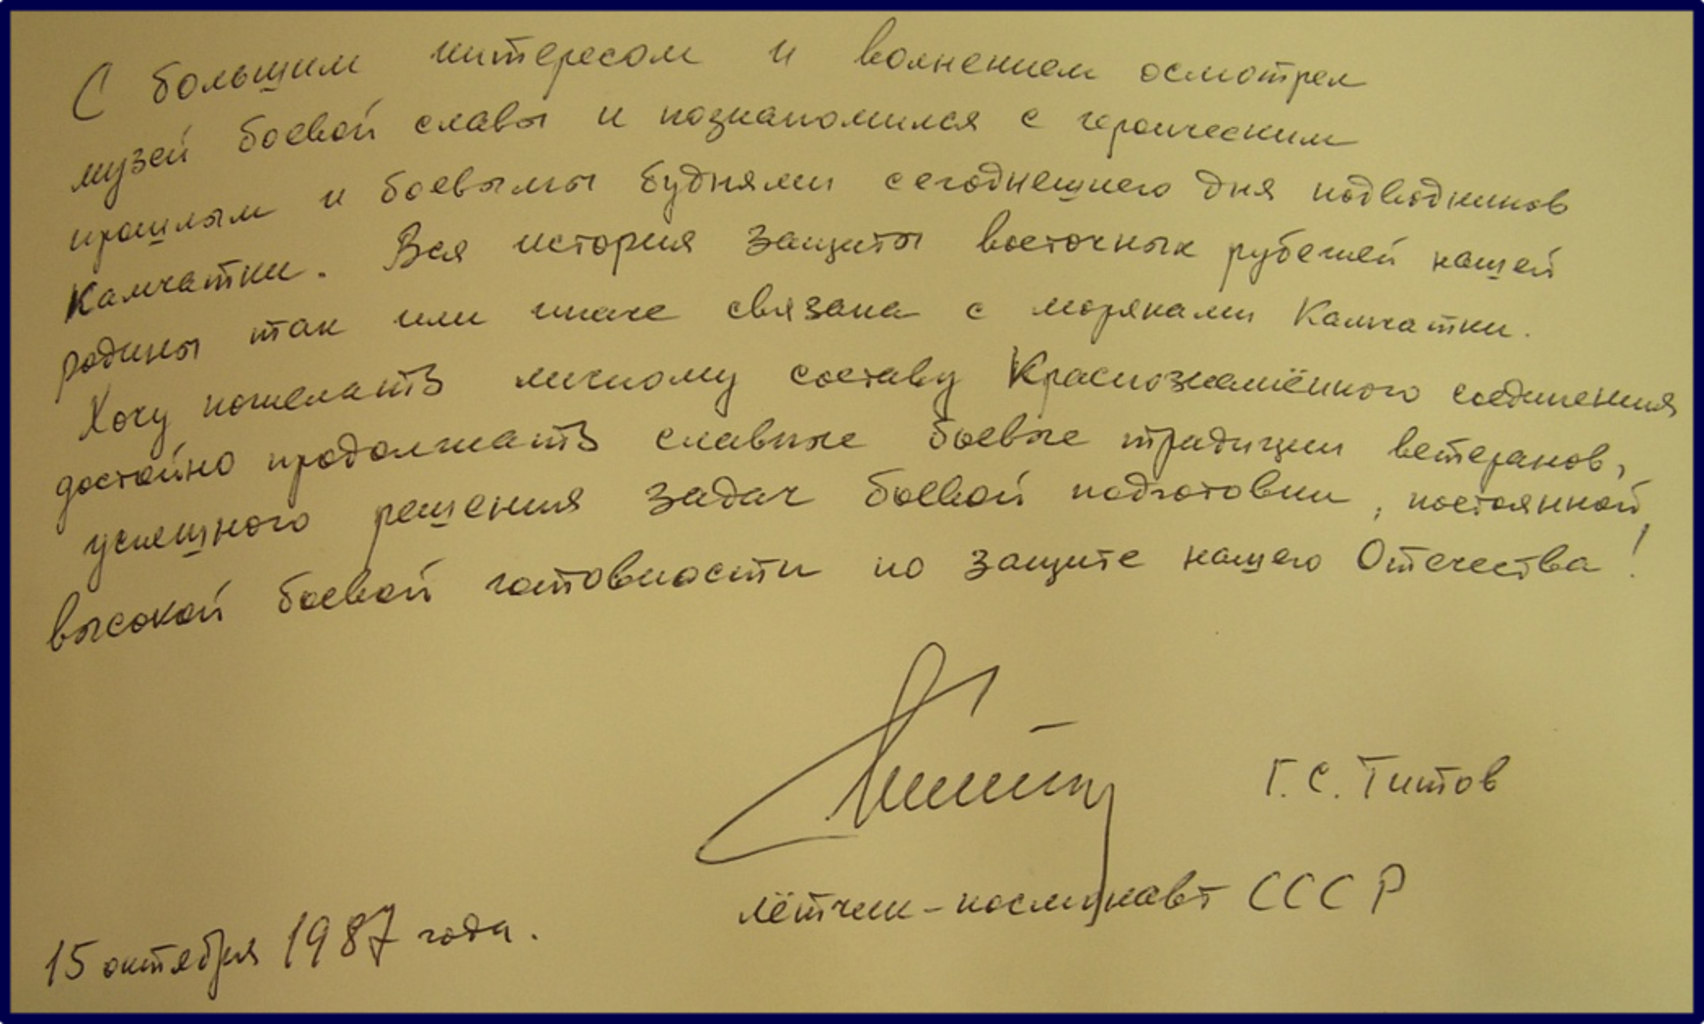 С большим интересом и волнением осмотрел
музей боевой славы и познакомился с героическим
прошлым и боевыми буднями сегоднешнего дня подводников
Камчатки. Вся история защиты восточных рубежей нашей
родины так или иначе связана с моряками Камчатки.
Хочу пожелать личному составу Краснознамённого соединения
достойно продолжать славные боевые традиции ветеранов,
успешного решения задач боевой подготовки, постоянной,
высокой боевой готовности по защите нашего Отечества!
Г. С. Титов
лётчик-космонавт СССР
15 октября 1987 года.